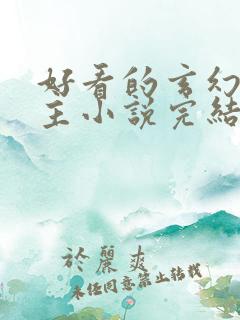 好看的玄幻
主小说完结
於丽爽
未经同意禁止转载